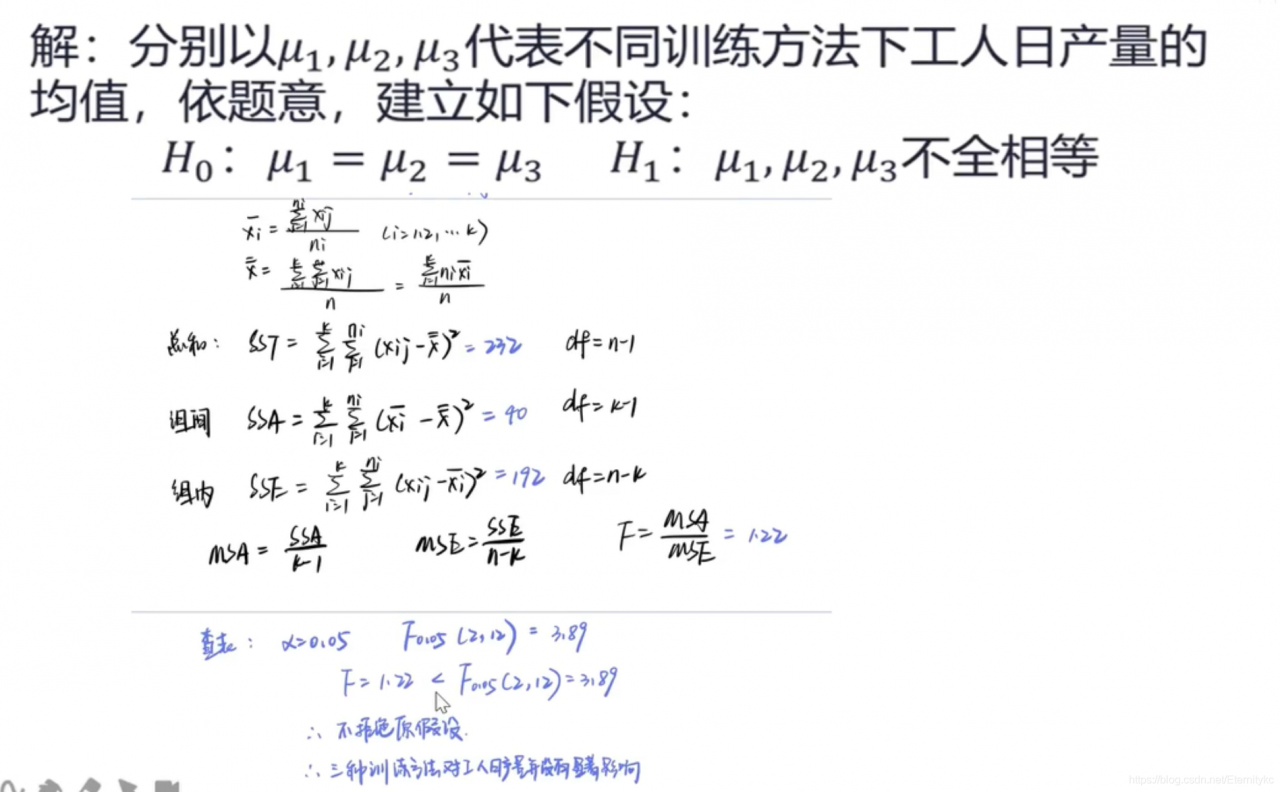 解：分别以μ₁, μ₂, μ₃代表不同训练方法下工人日产量的
均值，依题意，建立如下假设：
H₀： μ₁ = μ₂ = μ₃ H₁： μ₁, μ₂, μ₃不全相等
x̄i = Σ_{j=1}^{ni} xij / ni (i=1.2, ⋯ k)
x̿ = Σ_{i=1}^{k} Σ_{j=1}^{ni} xij / n = Σ_{i=1}^{k} ni x̄i / n
总和： SST = Σ_{i=1}^{k} Σ_{j=1}^{ni} (xij - x̿)² = 232 df = n-1
组间 SSA = Σ_{i=1}^{k} Σ_{j=1}^{ni} (x̄i - x̿)² = 40 df = k-1
组内 SSE = Σ_{i=1}^{k} Σ_{j=1}^{ni} (xij - x̄i)² = 192 df = n-k
MSA = SSA / k-1 MSE = SSE / n-k F = MSA / MSE = 1.22
查表： α=0.05 F0.05 (2,12) = 3.89
F = 1.22 < F0.05 (2,12) = 3.89
∴ 不拒绝原假设.
∴ 三种训练方法对工人日产量并没有显著影响
https://blog.csdn.net/Eternitykc